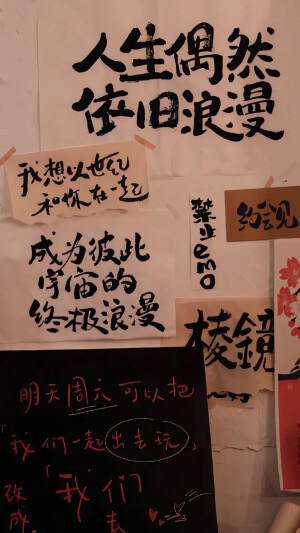 人生偶然
依旧浪漫
我想以世纪
和你在一起
禁止emo
约会见
成为彼此
宇宙的
终极浪漫
棱鏡
明天周六可以把
「我们一起出去玩,
改成「我们
去